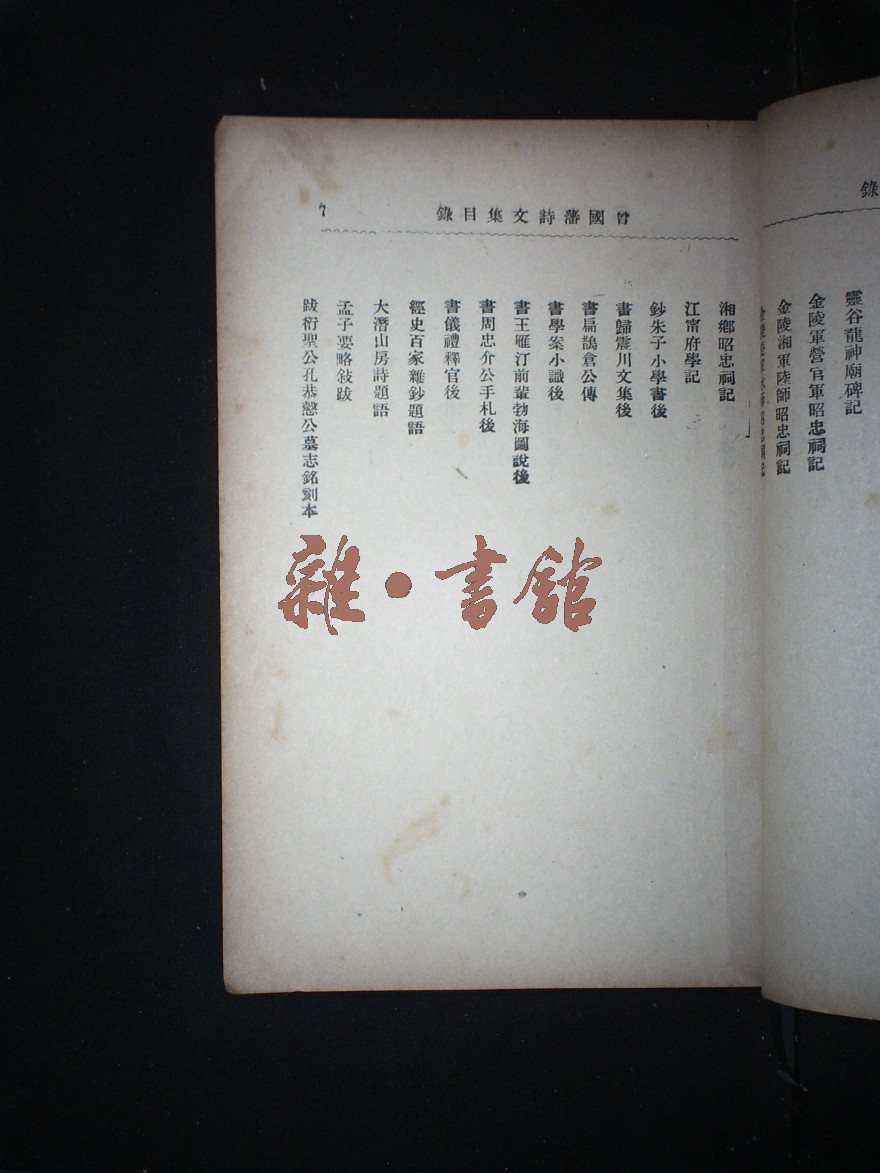 錄
靈谷龍神廟碑記
金陵軍營官軍昭忠祠記
金陵湘軍陸師昭忠祠記
曾國藩詩文集目錄
7
湘鄉昭忠祠記
江甯府學記
鈔朱子小學書後
書歸震川文集後
書扁鵲倉公傳
書學案小識後
書王雁汀前輩勃海圖說後
書周忠介公手札後
書儀禮釋官後
經史百家雜鈔題語
大潛山房詩題語
孟子要略敍跋
跋衍聖公孔恭慤公墓志銘刻本
雜·書館